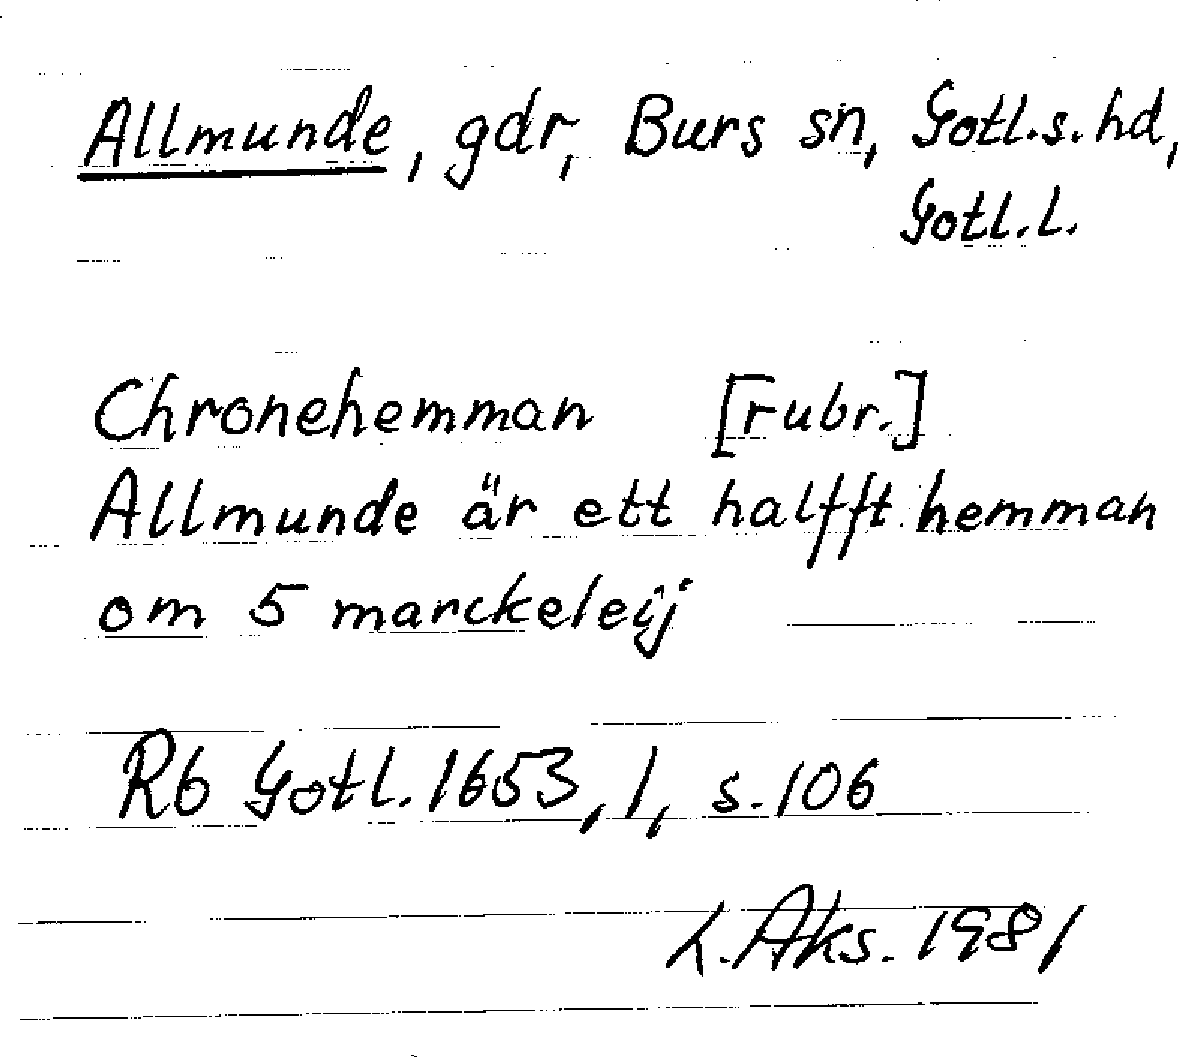 Allmunde, gdr, Burs sn, Gotl.s.hd,
Gotl.l.
Chronehemman [rubr.]
Allmunde är ett halfft hemman
om 5 marckeleij
Rb Gotl. 1653, 1, s. 106
L. Aks. 1981